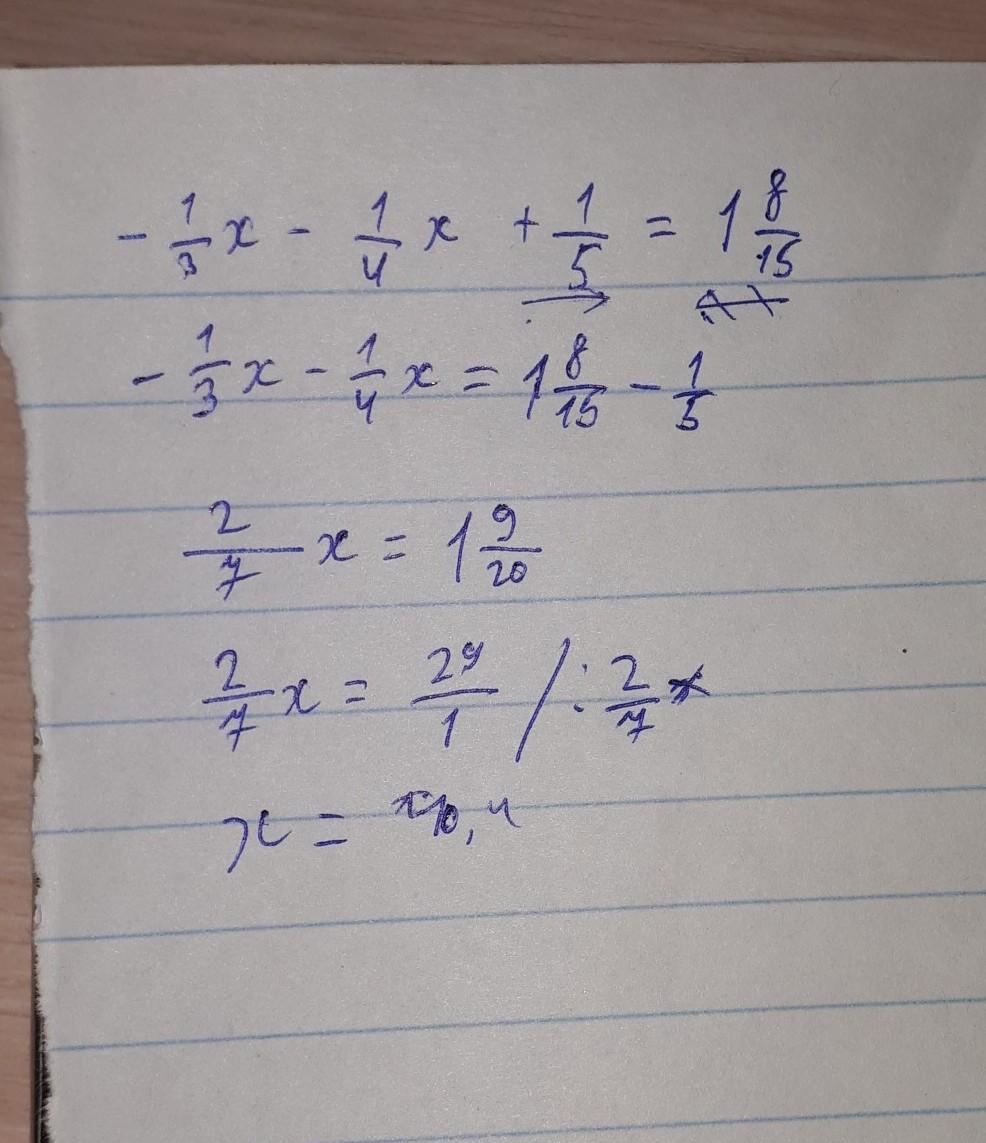 - 1/3 x - 1/4 x + 1/5 = 1 8/15
- 1/3 x - 1/4 x = 1 8/15 - 1/5
2/7 x = 1 9/20
2/7 x = 29/1 / : 2/7
x =